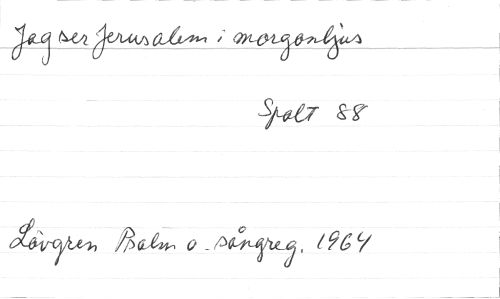 Jag ser Jerusalem i morgonljus
Spalt 88
Lövgren Psalm o. sångreg. 1964